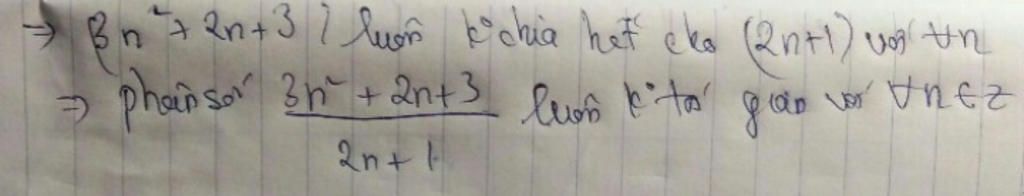 → (3n² + 2n+3) luôn k° chia hết cho (2n+1) với ∀n
⇒ phân số (3n² + 2n+3)/(2n+1) luôn k° tối giản với ∀n∈z